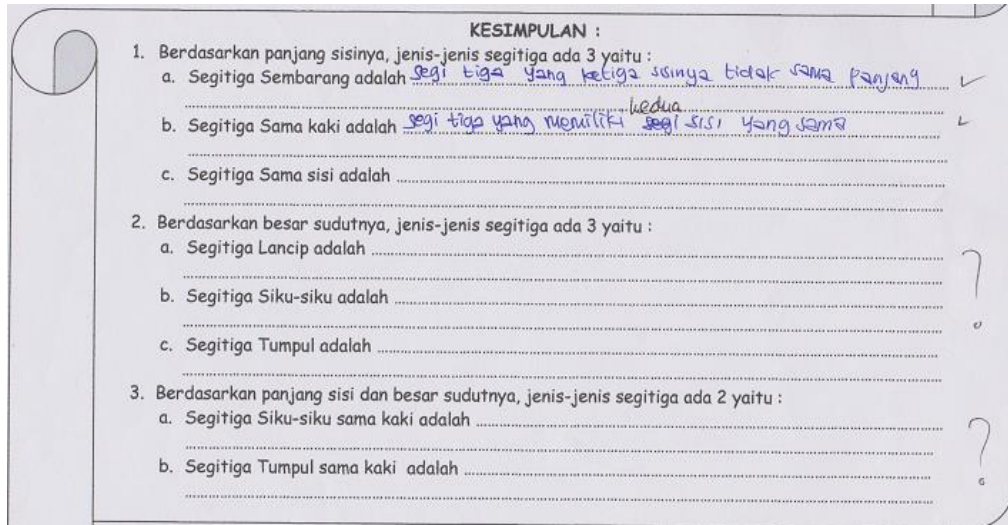 KESIMPULAN :
1. Berdasarkan panjang sisinya, jenis-jenis segitiga ada 3 yaitu :
a. Segitiga Sembarang adalah segi tiga yang ketiga sisinya tidak sama panjang
kedua
b. Segitiga Sama kaki adalah segi tiga yang memiliki segi sisi yang sama
c. Segitiga Sama sisi adalah
2. Berdasarkan besar sudutnya, jenis-jenis segitiga ada 3 yaitu :
a. Segitiga Lancip adalah
?
b. Segitiga Siku-siku adalah
c. Segitiga Tumpul adalah
3. Berdasarkan panjang sisi dan besar sudutnya, jenis-jenis segitiga ada 2 yaitu :
a. Segitiga Siku-siku sama kaki adalah
?
b. Segitiga Tumpul sama kaki adalah